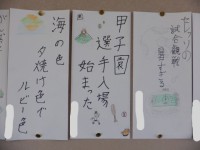 むしりの
試合観戦
暑すぎる
甲子園
選手入場
始まった
海の色
夕焼け色で
ルビー色